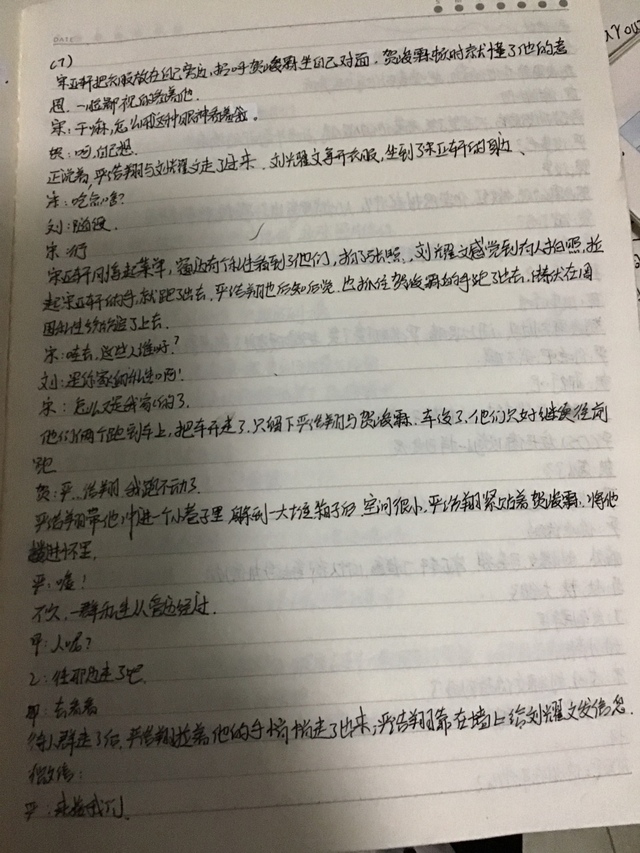 (7)
宋亚轩把衣服放在自己旁边,招呼贺峻霖坐自己对面.贺峻霖顿时就懂了他的意
思.一脸鄙视的盯着他.
宋:干嘛,怎么用这种眼神看着爸。
贺:呵,自己想.
正说着,严浩翔与刘耀文走了过来.刘耀文拿开衣服,坐到了宋亚轩的身边、
宋:吃点啥?
刘:随便.
宋:行
宋亚轩用指起菜单,旁边有个私生看到了他们,拍了张照.刘耀文感觉到有人拍照,拉
起宋亚轩的手,就跑了出去.严浩翔也后知后觉.也抓住贺峻霖的手跑了出去,潜伏在周
围私生纷纷追了上去.
宋:哇去,这些人谁呀?
刘:是你家的私生啊!
宋:怎么又是我家的了.
他们俩个跑到车上,把车开走了.只留下严浩翔与贺峻霖.车没了,他们只好继续往前
跑
贺:严、浩翔.我跑不动了.
严浩翔带他冲进一个小巷子里.躲到一大堆箱子后.空间很小.严浩翔紧贴着贺峻霖、将他
搂进怀里.
严:嘘!
不久,一群私生从旁边经过.
甲:人呢?
乙:往那边走了吧.
甲:去看看
待人群走了后,严浩翔拉着他的手悄悄走了出来,严浩翔靠在墙上给刘耀文发信息.
微信:
严:来接我们.